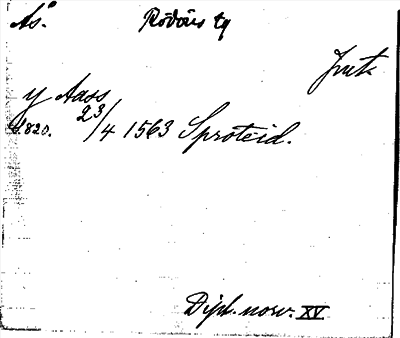 Ås. Rödöns tg
Jmtl
y Aass
S. 820. 23/4 1563 Sproteid.
Dipl. norv. XV